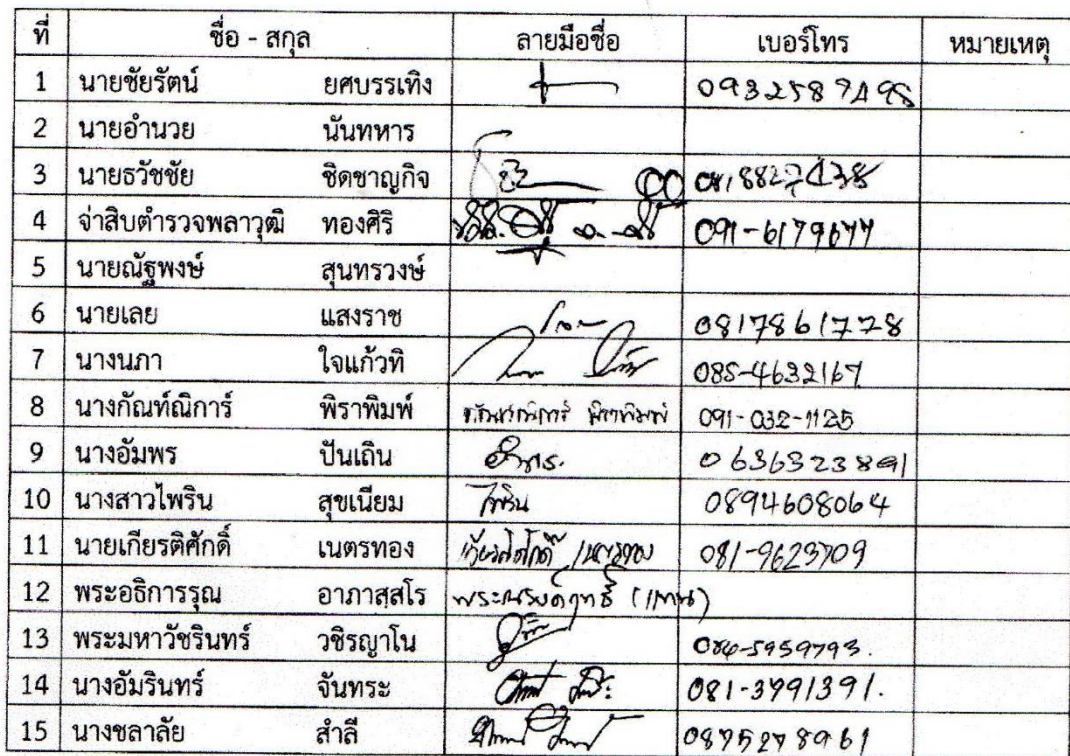 ที่ ชื่อ - สกุล ลายมือชื่อ เบอร์โทร หมายเหตุ
1 นายชัยรัตน์ ยศบรรเทิง
2 นายอำนวย นันทหาร
3 นายธวัชชัย ชิดชาญกิจ
4 จ่าสิบตำรวจพลาวุฒิ ทองศิริ 091-6179677
5 นายณัฐพงษ์ สุนทรวงษ์
6 นายเลย แสงราช 0817861778
7 นางนภา ใจแก้วทิ 085-4632167
8 นางกัณท์ณิการ์ พิราพิมพ์ กัณท์ณิการ์ พิราพิมพ์ 091-032-1125
9 นางอัมพร ปันเถิน อัมพร. 0636323891
10 นางสาวไพริน สุขเนียม ไพริน 0894608064
11 นายเกียรติศักดิ์ เนตรทอง เกียรติศักดิ์ เนตรทอง 081-9623709
12 พระอธิการรุณ อาภาสฺสโร (แทน)
13 พระมหาวัชรินทร์ วชิรญาโน 084-5959793.
14 นางอัมรินทร์ จันทระ 081-3991391.
15 นางชลาลัย สำลี 0875278961